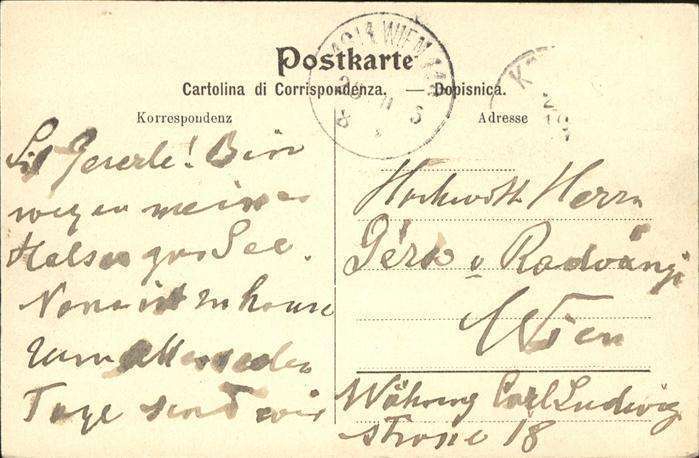 Postkarte
Cartolina di Corrispondenza. — Dopisnica.
Korrespondenz
Adresse
WIEN
Bin
wegen meines
Halses zur See.
Nona ist zu hause
zum
Tage sind wir
Hochwohl Herrn
v Radvánji
Wien
Währing Carl Ludwig
strasse 18